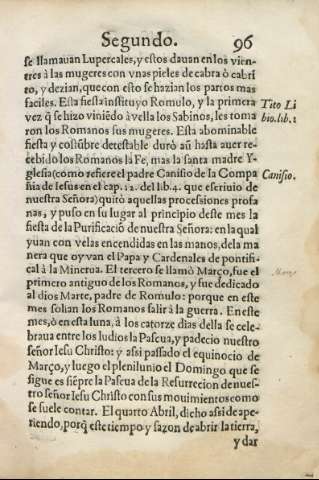 Segundo. 96
se llamauan Lupercales, y estos dauan en los vien-
tres à las mugeres con vnas pieles de cabra ò cabri
to, y dezian, que con esto se hazian los partos mas
faciles. Esta fiesta instituyo Romulo, y la primera
vez q̃ se hizo viniẽdo à vella los Sabinos, les toma
ron los Romanos sus mugeres. Esta abominable
fiesta y costũbre detestable durò aũ hasta auer re-
cebido los Romanos la Fe, mas la santa madre Y-
glesia (como refiere el padre Canisio de la Compa
ñia de Iesus en el cap. 12. del lib. 4. que escriuio de
nuestra Señora) quitò aquellas processiones profa
nas, y puso en su lugar al principio deste mes la
fiesta de la Purificaciõ de nuestra Señora: en la qual
yuan con velas encendidas en las manos, de la ma
nera que oy van el Papa y Cardenales de pontifi-
cal à la Minerua. El tercero se llamò Março, fue el
primero antiguo de los Romanos, y fue dedicado
al dios Marte, padre de Romulo: porque en este
mes solian los Romanos salir à la guerra. En este
mes, ò en esta luna, à los catorze dias della se cele-
braua entre los Iudios la Pascua, y padecio nuestro
señor Iesu Christo: y assi passado el equinocio de
Março, y luego el plenilunio el Domingo que se
sigue es siẽpre la Pascua de la Resurrecion de nues-
tro señor Iesu Christo con sus mouimientos como
se suele contar. El quarto Abril, dicho assi de ape-
riendo, porq̃ este tiempo y sazon de abrir la tierra,
y dar
Tito Li
bio. lib. 1
Canisio.